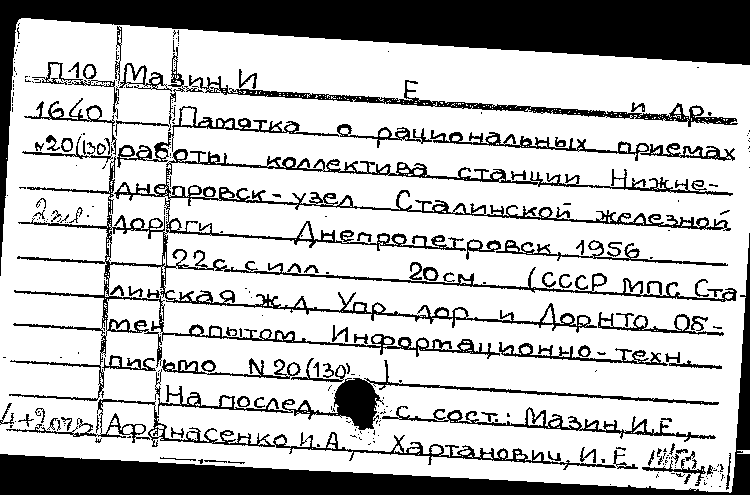 П10 Мазин, И Е и др.
1640 Памятка о рациональных приемах
N20(130) работы коллектива станции Нижне-
днепровск-узел Сталинской железной
дороги. Днепропетровск, 1956.
22с. с илл. 20см. (СССР МПС. Ста-
линская ж.д. Упр. дор. и ДорНТО. Об-
мен опытом. Информационно-техн.
письмо N20(130) ).
На послед. с. сост.: Мазин, И.Е.,
Афанасенко, И.А., Хартанович, И.Е.